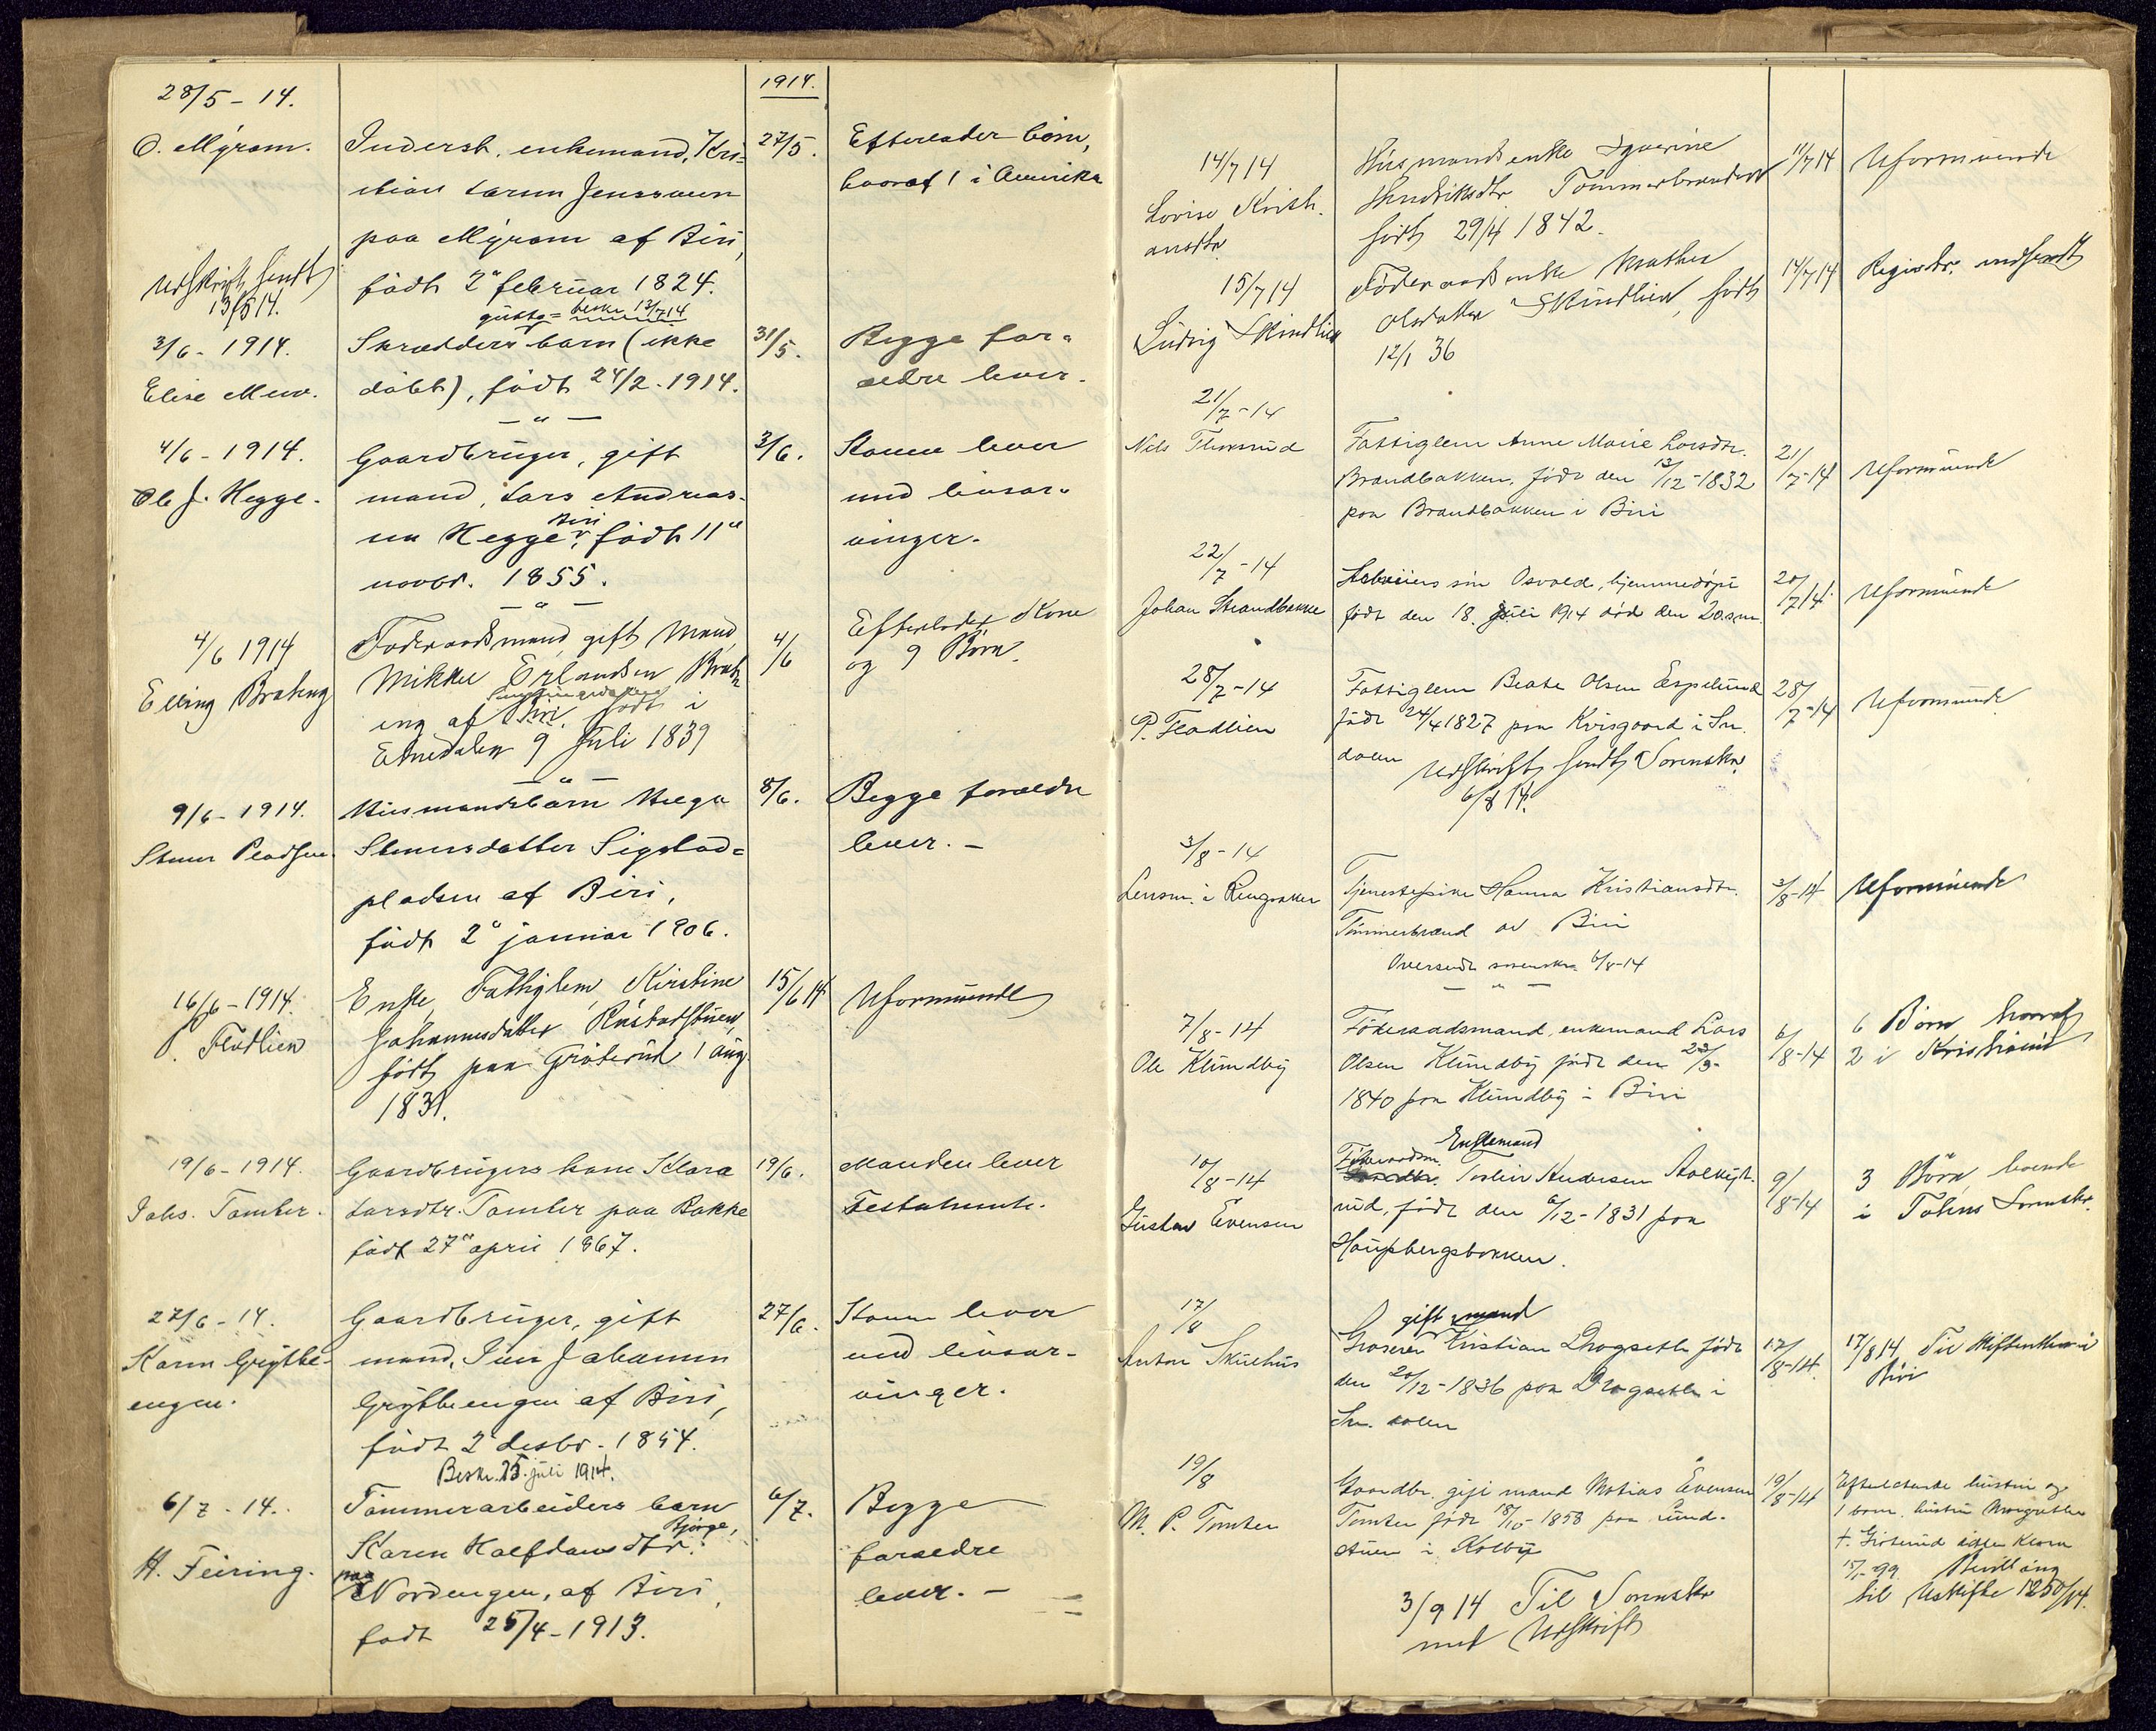 1914.
28/5 - 14.
O. Myrom.
Inderst. enkemand, Kri-
stian Larsen Jenssveen
paa Myrom af Biri,
født 2" februar 1824.
27/5.
Efterlader børn,
hvoraf 1 i Amerika
Udskrift sendt
13/6 14.
gustg = beskr 13/7 14
3/6 - 1914.
Elise Moen.
Skrædders barn (ikke
døbt), født 24/2 - 1914.
31/5.
Begge for-
ældre lever.
— " —
4/6 - 1914.
Ole J. Hegge.
Gaardbruger, gift
mand, Lars Andreas-
sen Hegge, Biri, født 11"
novbr. 1855.
3/6.
Konen lever
med livsar-
vinger.
— " —
4/6 1914
Elling Brateng
Føderaadsmand, gift Mand
Mikkel Erlandsen Brat-
eng af Biri, født i
Etnedalen 9 Juli 1839
4/6
Efterlader Kone
og 9 Børn.
— " —
9/6 - 1914.
Stener Pladsen.
Husmandsbarn Helga
Stenersdatter Sigstad-
pladsen af Biri,
født 2" januar 1906.
8/6.
Begge forældre
lever. -
16/6 - 1914.
P. Flødlien
Enke, Fattiglem, Kirstine
Johannesdatter Rustadstuen,
født paa Grøterud 1 Aug
1831.
15/6 14
Uformuende
19/6 - 1914.
Johs. Tomter.
Gaardbrugers kone Klara
Larsdtr. Tomter paa Bakke
født 27" april 1867.
19/6.
Manden lever
Testamente.
27/6 - 14.
Karen Grytbe-
engen.
Gaardbruger, gift
mand, Iver Johannesen
Grytbeengen af Biri,
født 2" desbr. 1854.
27/6.
Konen lever
med livsar-
vinger.
Beskr. 25. juli 1914.
6/7 - 14.
H. Feiring.
Tømmerarbeiders barn
Karen Halfdansdtr. Bjørge,
paa Nordengen, af Biri,
født 25/4 - 1913.
6/7.
Begge
forældre
lever. -
14/7 14
Lovise Kristi-
ansdtr.
Husmandsenke Syverine
Hendriksdtr. Tømmerbrænden
født 29/4 1842.
11/7 14
Uformuende
15/7 14
Ludvig Skundlien
Føderaadsenke Mathea
Olsdatter Skundlien, født
12/1 36
14/7 14
Registr. indsendt
21/7 - 14
Nils Thorsrud
Fattiglem Anne Marie Larsdtr.
Brandbakken, født den 13/12 - 1832
paa Brandbakken i Biri
21/7 - 14
Uformuende
22/7 - 14
Johan Strandbakke
søn Osvald, hjemmedøpt
født den 18. juli 1914 død den 20. s.m.
20/7 14.
Uformuende
28/7 - 14
P. Flødlien
Fattiglem Beate Olsen Espelund
født 24/4 1827 paa Kvisgaard i Sn.
dalen
28/7 - 14
Uformuende
Udskrift sendt Sorenskr.
6/8 14.
3/8 - 14
Lensm. i Ringsaker
Tjenestepike Hanna Kristiansdtr.
Tømmerbrænd av Biri
Oversendt sorenskr. 6/8 - 14
— " —
3/8 - 14
Uformuende
7/8 - 14
Ole Klundby
Føderaadsmand, enkemand Lars
Olsen Klundby født den 23/3 -
1840 paa Klundby i Biri
6/8 - 14
6 Børn hvoraf
2 i Kristiania
10/8 - 14
Gustav Evensen
Enkemand
Føderaadsm. Torleiv Andersen
rud, født den 6/12 - 1831 paa
Haugsbergsbakken.
9/8 - 14
3 Børn, boende
i Totens Sorenskr.
17/8
Anton Skulhus
gift mand
Kristian Drogseth født
den 20/12 - 1836 paa Drogseth i
Sn. dalen
17/8 - 14.
17/8 14 Til Skifteretten i
Biri
19/8
M. P. Tomter
Gaardbr. gift mand Matias Evensen
Tomter født 18/10 - 1858 paa Rund-
stuen i Kolbu
19/8 - 14
Efterlatende hustru og
1 barn, hustru Margrethe
f. Grøterud
15/1 - 99. Bevilling
til Uskifte 1250/14.
3/9 14 Til Sorenskr
med Udskrift